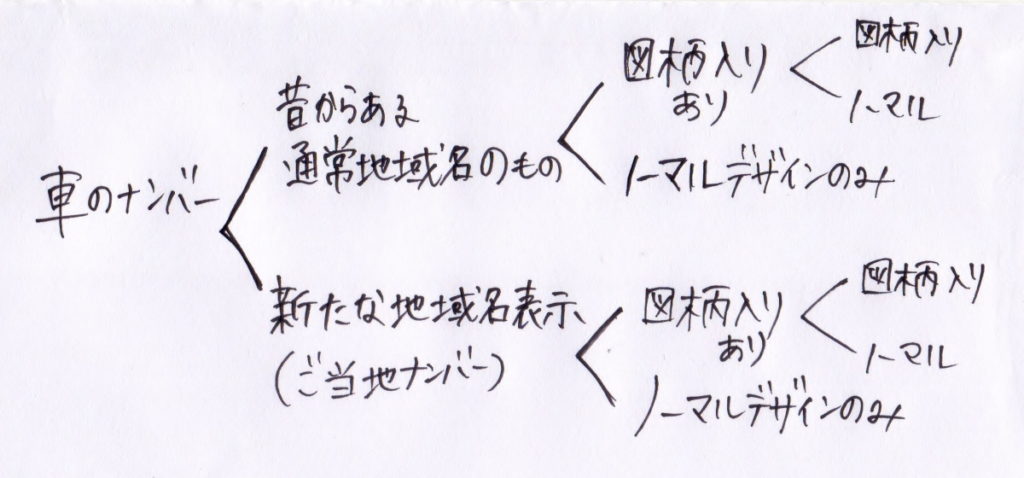 車のナンバー
昔からある
通常地域名のもの
図柄入り
あり
図柄入り
ノーマル
ノーマルデザインのみ
新たな地域名表示
(ご当地ナンバー)
図柄入り
あり
図柄入り
ノーマル
ノーマルデザインのみ